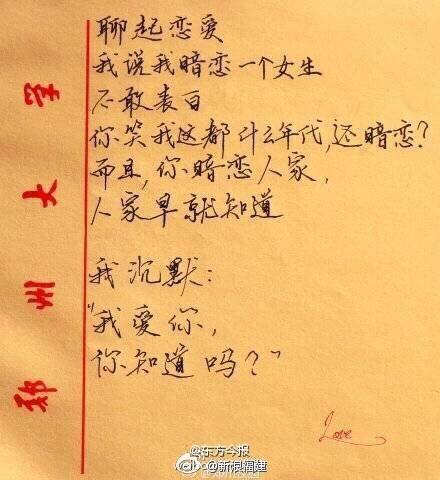 聊起恋爱
我说我暗恋一个女生
不敢表白
你笑我这都什么年代,还暗恋?
而且,你暗恋人家,
人家早就知道
我沉默:
"我爱你,
你知道吗?"
郑州大学
Love
@东方今报
@新根福建